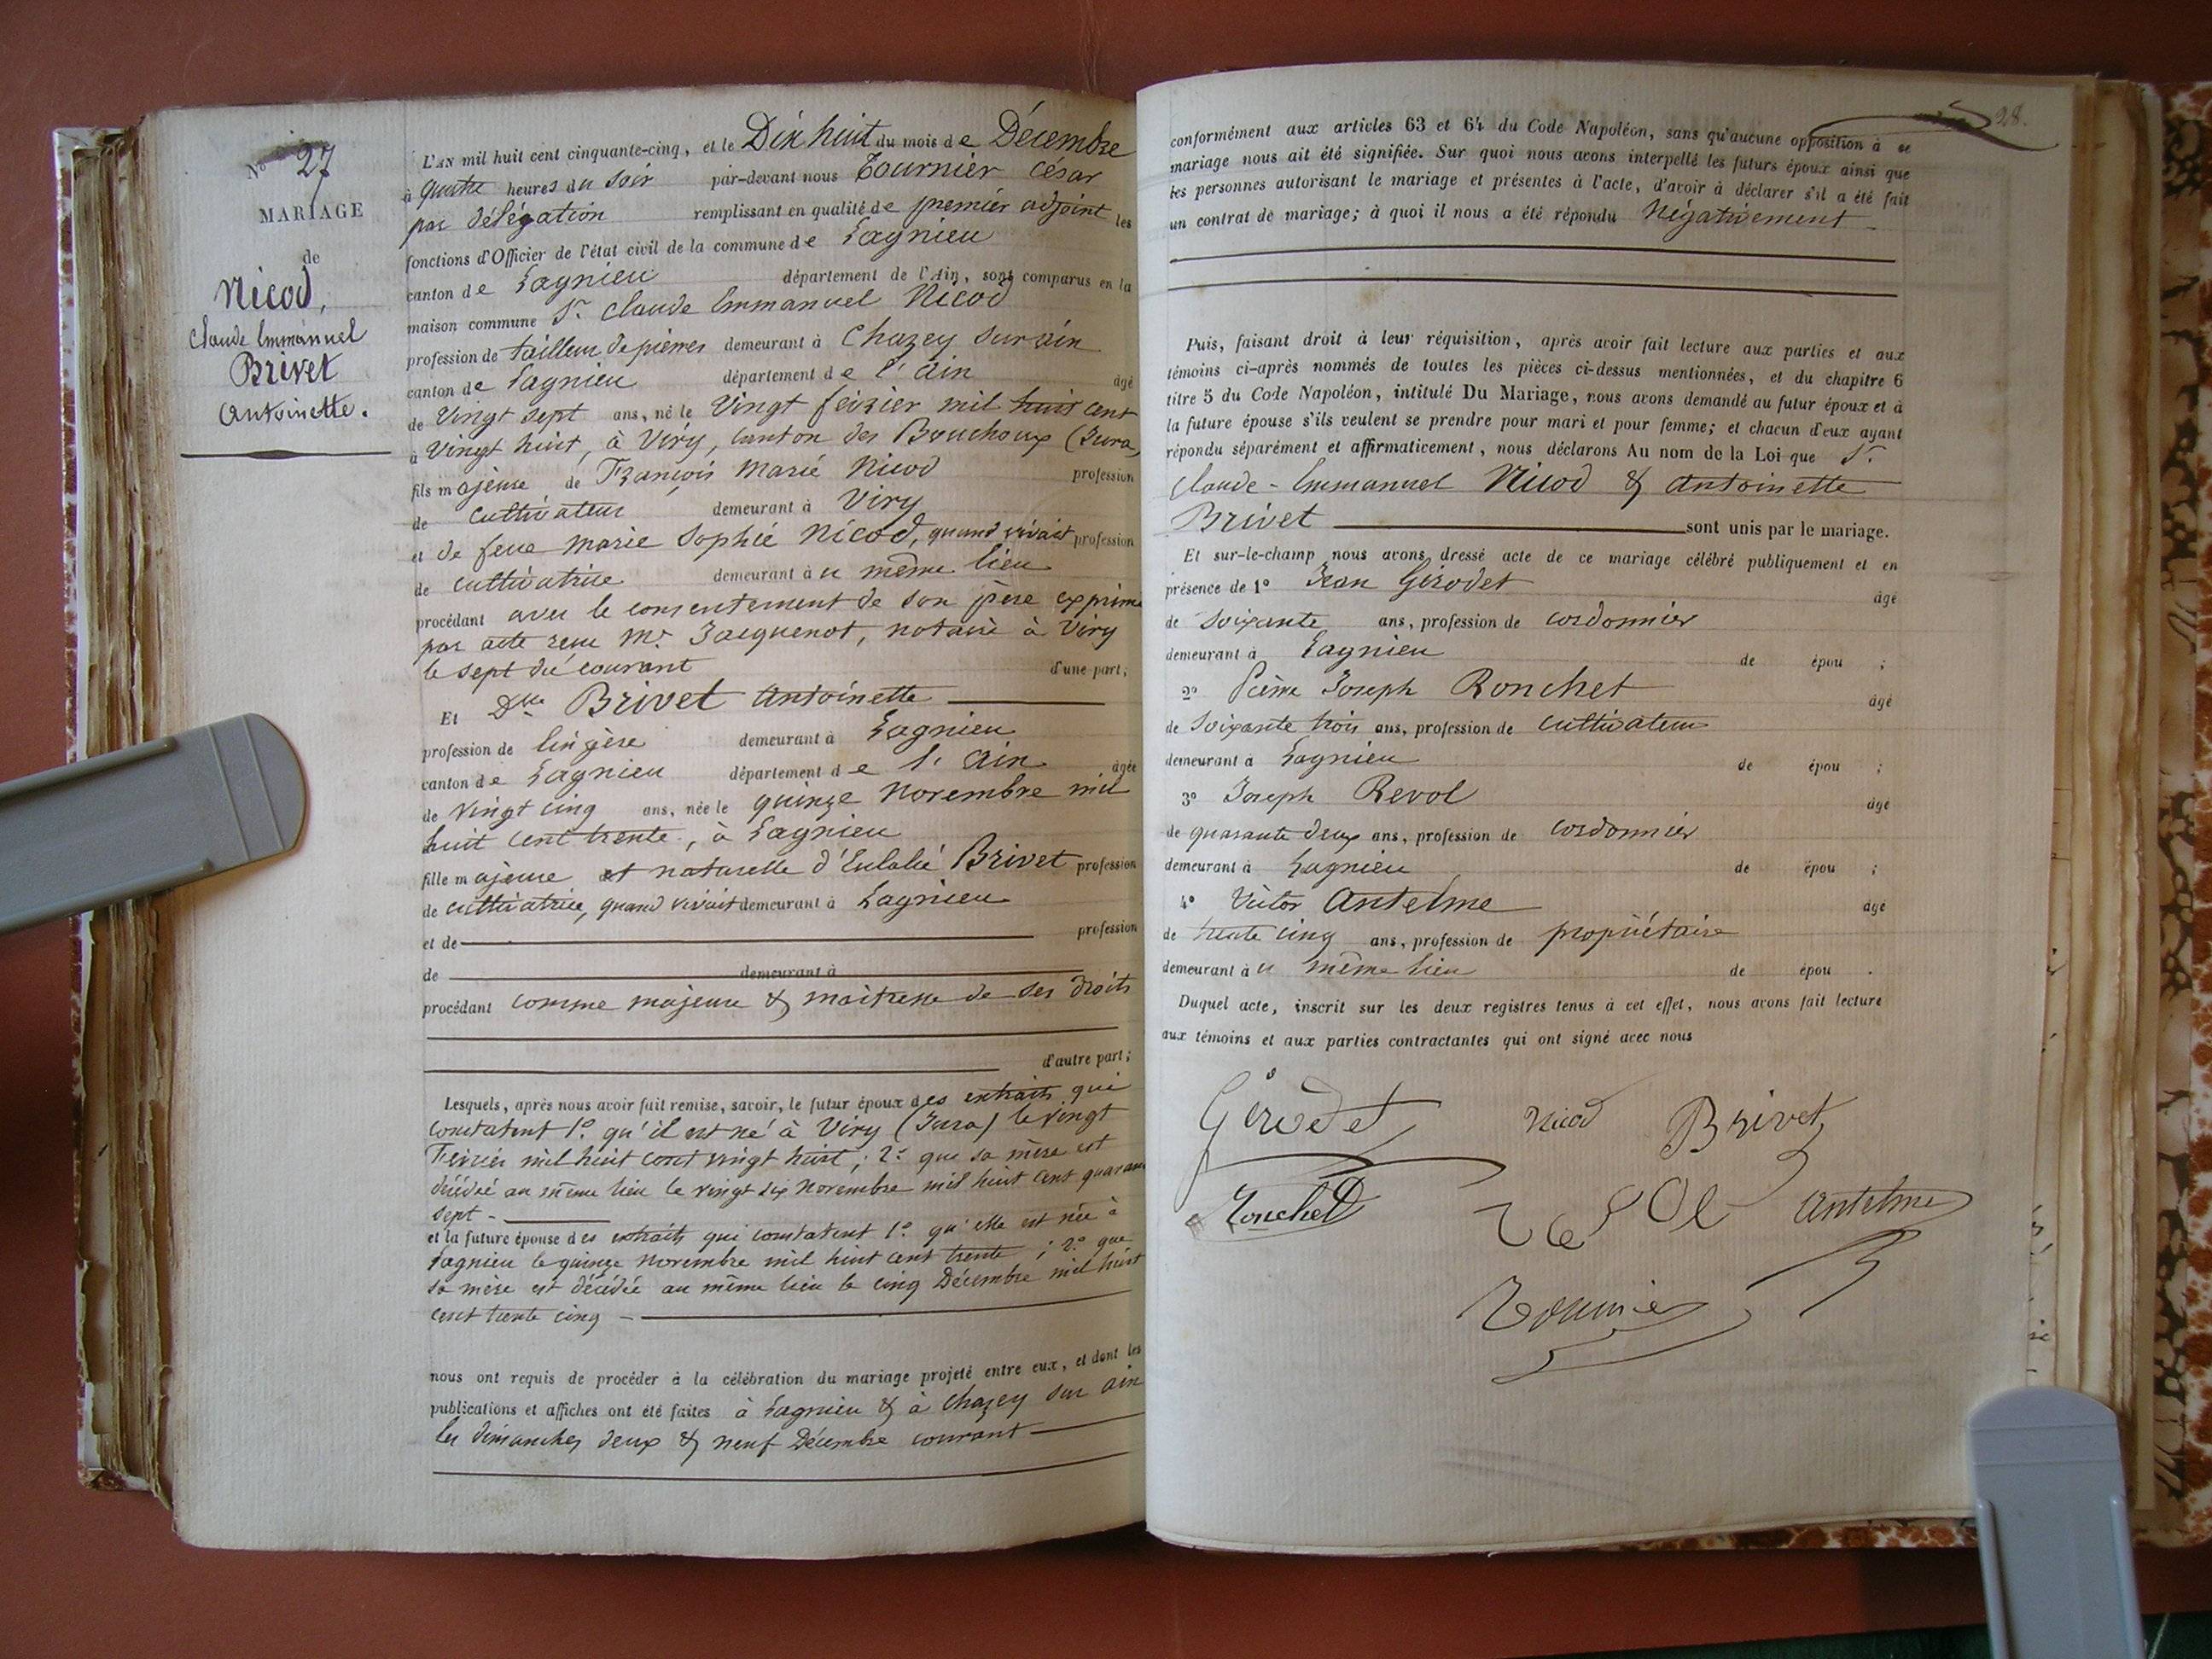 No 27
MARIAGE
de
Nicod,
Claude Emmanuel
Brivet
Antoinette.
L'AN mil huit cent cinquante-cinq, et le Dix huit du mois de Décembre
à quatre heures du soir par-devant nous Tournier César
par délégation remplissant en qualité de premier adjoint les
fonctions d'Officier de l'état civil de la commune de Lagnieu
canton de Lagnieu département de l'Ain, sont comparus en la
maison commune Sr. Claude Emmanuel Nicod
profession de tailleur de pierres demeurant à Chazey sur ain
canton de Lagnieu département de l'Ain âgé
de Vingt sept ans, né le Vingt février mil huit cent
Vingt huit, à Viry, canton des Bouchoux (Jura)
fils majeur de François Marie Nicod profession
de cultivateur demeurant à Viry
et de feue Marie Sophie Nicod, quand vivait profession
de cultivatrice demeurant à u même lieu
procédant avec le consentement de son père exprimé
par acte reçu Me Jacquenot, notaire à Viry
le sept du courant d'une part;
Et Dlle Brivet Antoinette
profession de lingère demeurant à Lagnieu
canton de Lagnieu département de l'Ain âgée
de vingt cinq ans, née le quinze Novembre mil
huit cent trente, à Lagnieu
fille majeure et naturelle d'Eulalie Brivet profession
de cultivatrice, quand vivait demeurant à Lagnieu
et de profession
de demeurant à
procédant comme majeure & maîtresse de ses droits
d'autre part;
Lesquels, après nous avoir fait remise, savoir, le futur époux des extraits qui
constatent 1.° qu'il est né à Viry (Jura) le vingt
Février mil huit cent vingt huit; 2.° que sa mère est
décédée au même lieu le vingt six Novembre mil huit cent quarante
sept
et la future épouse des extraits qui constatent 1.° qu'elle est née à
Lagnieu le quinze Novembre mil huit cent trente; 2.° que
sa mère est décédée au même lieu le cinq Décembre mil huit
cent trente cinq
nous ont requis de procéder à la célébration du mariage projeté entre eux, et dont les
publications et affiches ont été faites à Lagnieu & à Chazey sur ain
les dimanches deux & neuf Décembre courant
28.
conformément aux articles 63 et 64 du Code Napoléon, sans qu'aucune opposition à ce
mariage nous ait été signifiée. Sur quoi nous avons interpellé les futurs époux ainsi que
les personnes autorisant le mariage et présentes à l'acte, d'avoir à déclarer s'il a été fait
un contrat de mariage; à quoi il nous a été répondu Négativement
Puis, faisant droit à leur réquisition, après avoir fait lecture aux parties et aux
témoins ci-après nommés de toutes les pièces ci-dessus mentionnées, et du chapitre 6
titre 5 du Code Napoléon, intitulé Du Mariage, nous avons demandé au futur époux et à
la future épouse s'ils veulent se prendre pour mari et pour femme; et chacun d'eux ayant
répondu séparément et affirmativement, nous déclarons Au nom de la Loi que Sr.
Claude-Emmanuel Nicod & Antoinette
Brivet sont unis par le mariage.
Et sur-le-champ nous avons dressé acte de ce mariage célébré publiquement et en
présence de 1° Jean Gérodet âgé
de soixante ans, profession de cordonnier
demeurant à Lagnieu de épou ;
2° Pierre Joseph Ronchet âgé
de soixante trois ans, profession de cultivateur
demeurant à Lagnieu de épou ;
3° Joseph Revol âgé
de quarante deux ans, profession de cordonnier
demeurant à Lagnieu de épou ;
4° Victor Antelme âgé
de trente cinq ans, profession de propriétaire
demeurant à u même lieu de épou .
Duquel acte, inscrit sur les deux registres tenus à cet effet, nous avons fait lecture
aux témoins et aux parties contractantes qui ont signé avec nous
Gérodet Nicod Brivet
Ronchet Revol Antelme
Tournier